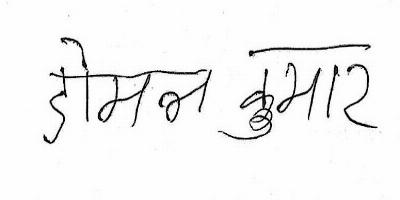 डोमन कुमार